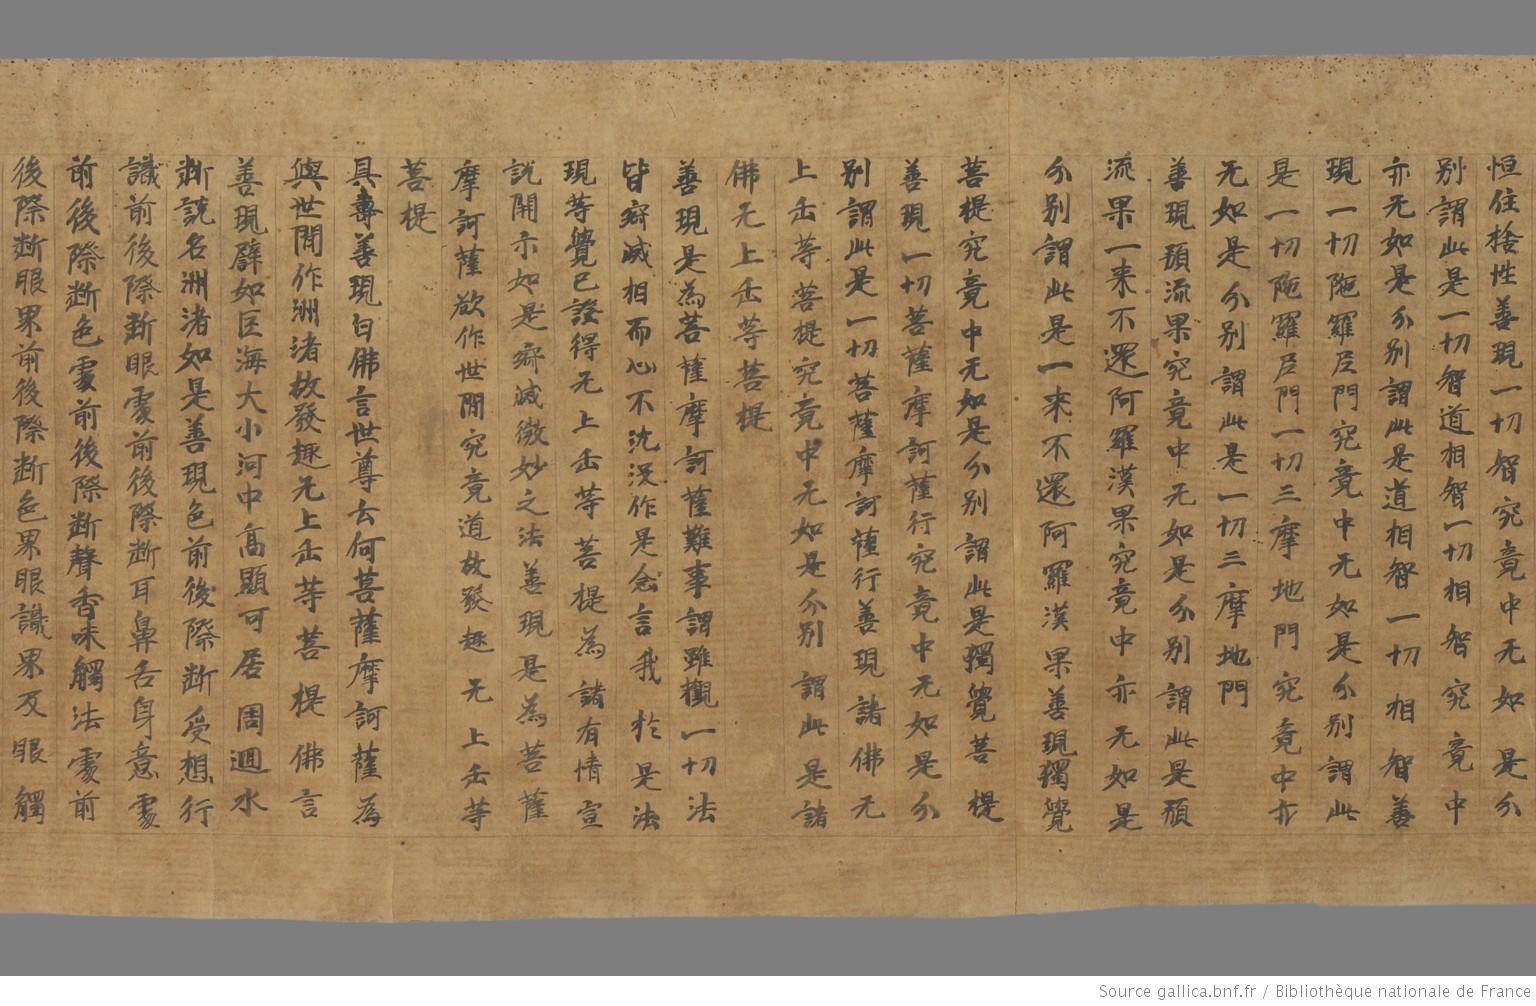 恒住捨性善現一切智究竟中无如是分
別謂此是一切智道相智一切相智究竟中
亦无如是分別謂此是道相智一切相智善
現一切陁羅尼門究竟中无如是分別謂此
是一切陁羅尼門一切三摩地門究竟中亦
无如是分別謂此是一切三摩地門
善現預流果究竟中无如是分別謂此是預
流果一来不還阿羅漢果究竟中亦无如是
分別謂此是一来不還阿羅漢果善現獨覺
菩提究竟中无如是分別謂此是獨覺菩提
善現一切菩薩摩訶薩行究竟中无如是分
別謂此是一切菩薩摩訶薩行善現諸佛无
上正等菩提究竟中无如是分別謂此是諸
佛无上正等菩提
善現是為菩薩摩訶薩難事謂雖觀一切法
皆寂滅相而心不沈没作是念言我於是法
現等覺已證得无上正等菩提為諸有情宣
說開示如是寂滅微妙之法善現是為菩薩
摩訶薩欲作世間究竟道故發趣无上正等
菩提
具壽善現白佛言世尊云何菩薩摩訶薩為
與世間作洲渚故發趣无上正等菩提佛言
善現譬如巨海大小河中高顯可居周迴水
断說名洲渚如是善現色前後際断受想行
識前後際断眼處前後際断耳鼻舌身意處
前後際断色處前後際断聲香味觸法處前
後際断眼界前後際断色界眼識界及眼觸
Source gallica.bnf.fr / Bibliothèque nationale de France